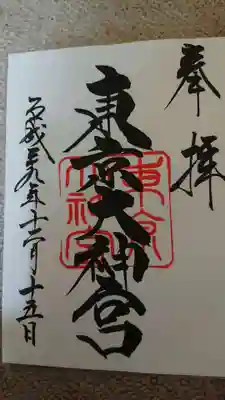 奉拝
東京大神宮
平成二十九年十二月十五日
東京大神宮